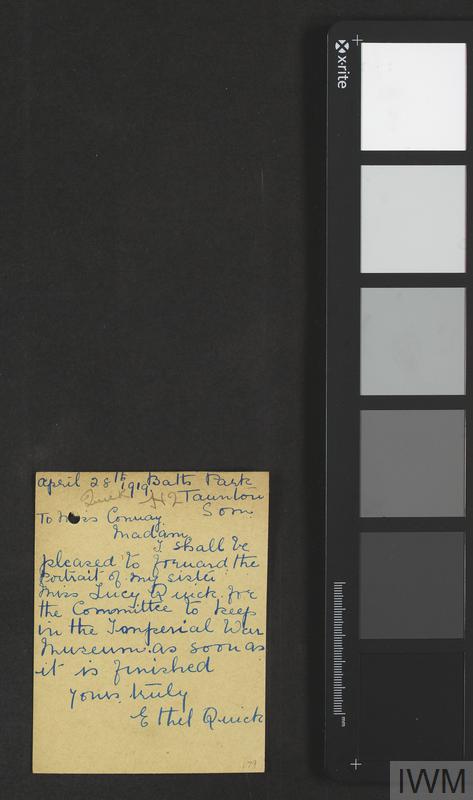 April 28th 1919 Batts Park
Quick
Taunton
Som.
To Miss Conway.
Madam,
I shall be
pleased to forward the
portrait of my sister
Miss Lucy Quick for
the Committee to keep
in the Imperial War
Museum. as soon as
it is finished
Yours. truly
Ethel Quick
179
x-rite
mm
IWM